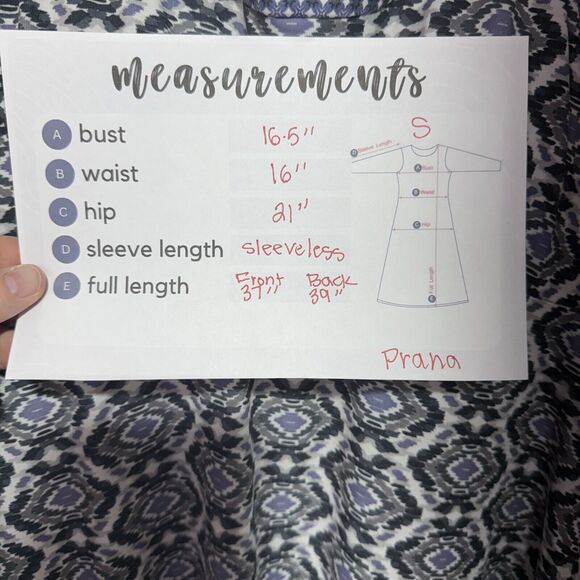 measurements
A bust 16.5"
B waist 16"
C hip 21"
D sleeve length sleeveless
E full length Front 37" Back 39"
S
D Sleeve Length
A Bust
B Waist
C Hip
E Full Length
Prana